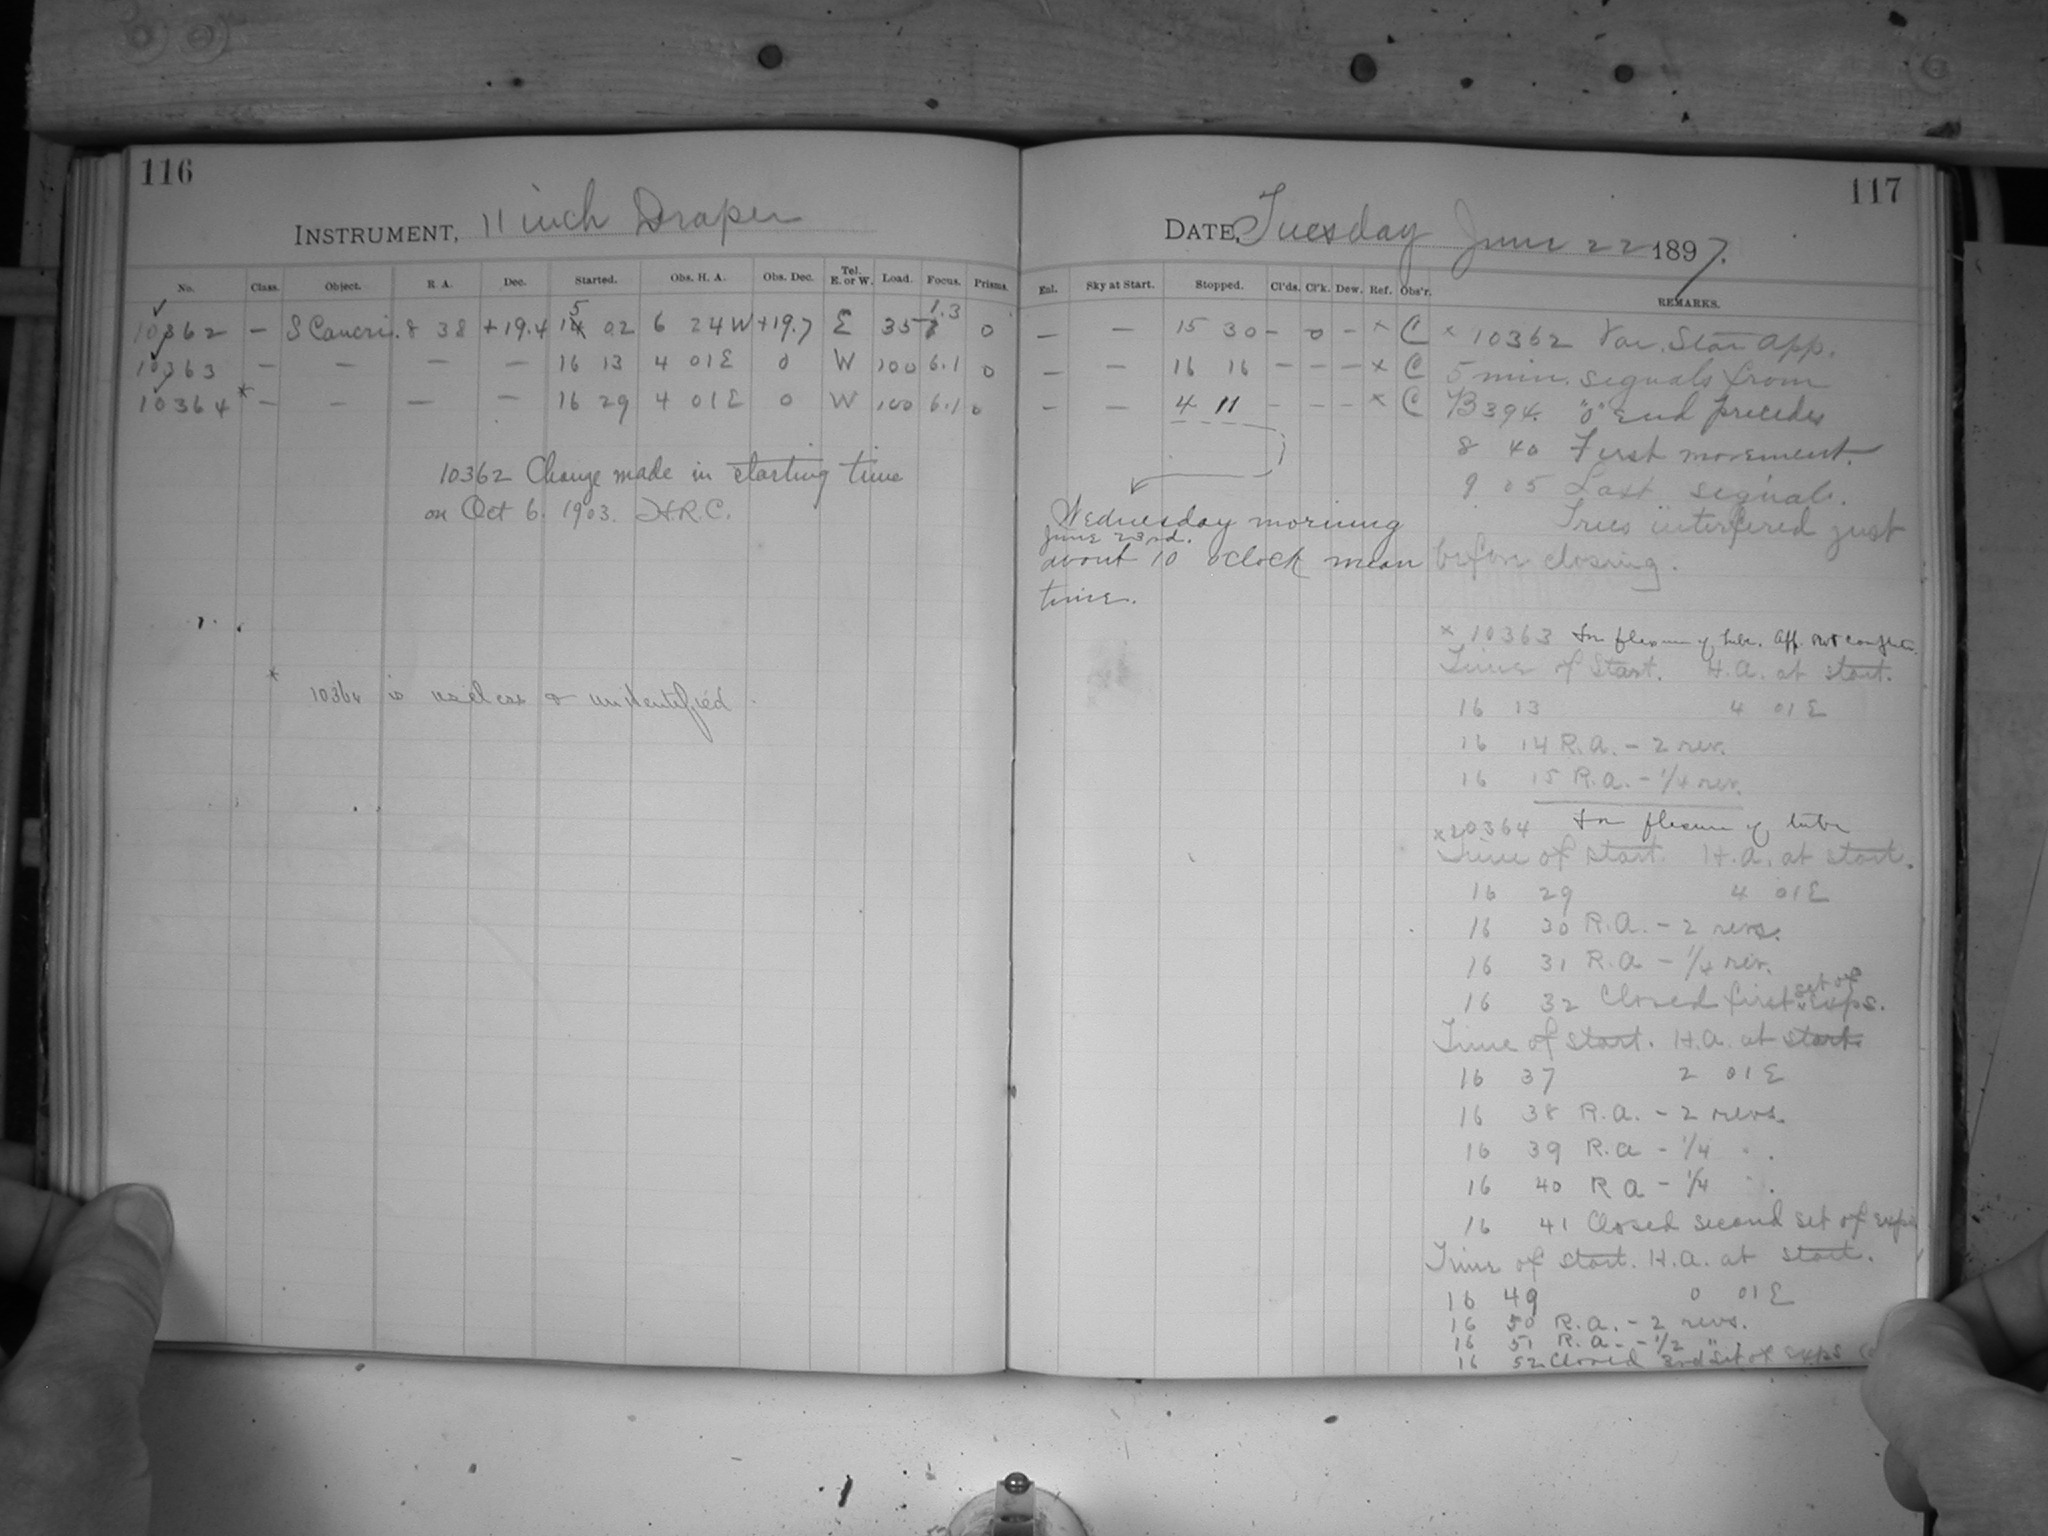 116
INSTRUMENT, 11 inch Draper
No. Class. Object. R. A. Dec. Started. Obs. H. A. Obs. Dec. Tel. E. or W. Load. Focus. Prisms.
10362 — S Cancri. 8 38 +19.4 15 02 6 24 W +19.7 E 35 1.3 0
10363 — — — — 16 13 4 01 E 0 W 100 6.1 0
10364 * — — — — 16 29 4 01 E 0 W 100 6.1 0
10362 Change made in starting time
on Oct 6. 1903. H.R.C.
* 10364 is useless & unidentified
117
DATE, Tuesday June 22 1897.
Enl. Sky at Start. Stopped. Cl'ds. Cl'k. Dew. Ref. Obs'r. REMARKS.
— — 15 30 — 0 — x C
— — 16 16 — — — x C
— — 4 11 — — — x C
Wednesday morning
June 23rd.
about 10 o'clock mean
time.
x 10362 Var. Star App.
5 min. signals from
B394. "0" end precedes
8 40 First movement.
9 05 Last signal.
Trees interfered just
before closing.
x 10363 For flexure of tube. App. not complete.
Time of Start. H.A. at start.
16 13 4 01 E
16 14 R.A. - 2 rev.
16 15 R.A. - 1/4 rev.
x 10364 For flexure of tube
Time of start. H.A. at start.
16 29 4 01 E
16 30 R.A. - 2 revs.
16 31 R.A - 1/4 rev.
16 32 Closed first set of exps.
Time of start. H.A. at start.
16 37 2 01 E
16 38 R.A. - 2 revs.
16 39 R.A - 1/4 " .
16 40 R A - 1/4 " .
16 41 Closed second set of exps
Time of start. H.A. at start.
16 49 0 01 E
16 50 R.A. - 2 revs.
16 51 R.A. - 1/2 "
16 52 Closed 3rd set of exps